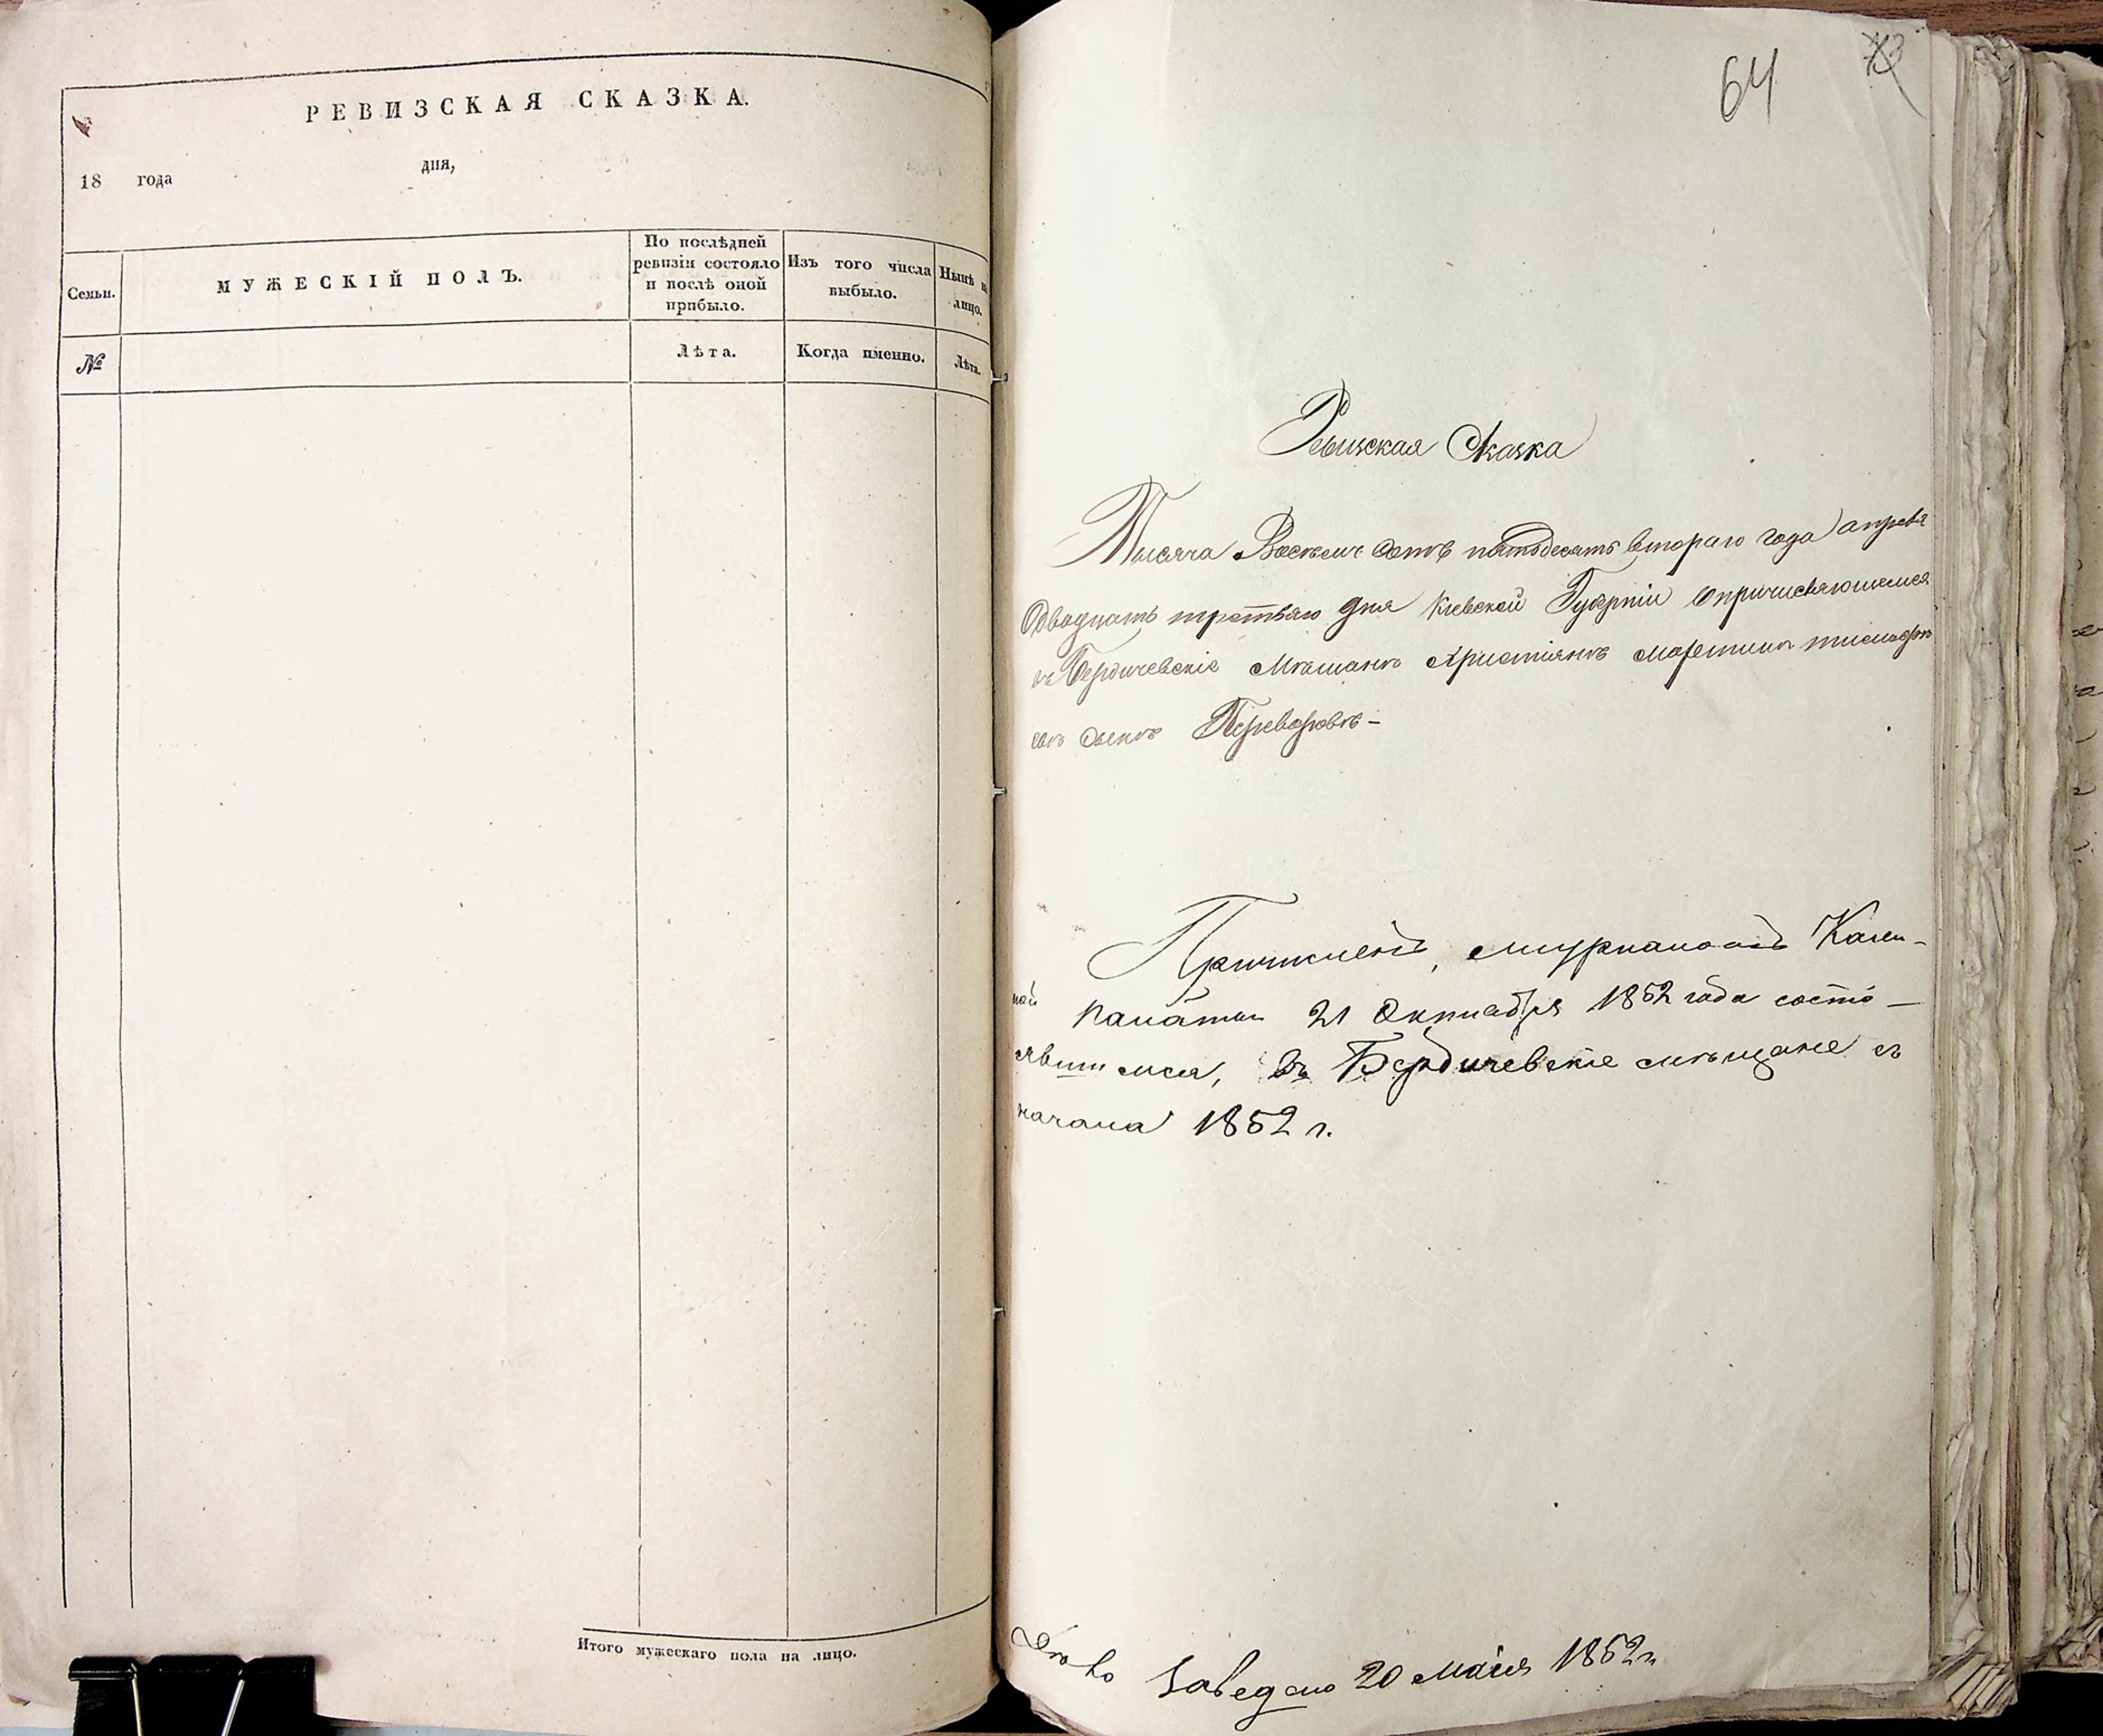 РЕВИЗСКАЯ СКАЗКА.
18 года дня,
Семьи.
МУЖЕСКІЙ ПОЛЪ.
По послѣдней
ревизіи состояло
и послѣ оной
прибыло.
Изъ того числа
выбыло.
Нынѣ на
лицо.
№
Лѣта.
Когда именно.
Лѣта.
Итого мужескаго пола на лицо.
64
73
Ревизская Сказка
Тысяча Восемь сотъ пятьдесятъ втораго года апреля
двадцать третьяго дня Кіевской Губерніи опричисляющемся
въ Бердичевскіе Мѣщане Христіянъ Мартинъ
сынъ
Причисленъ, журналомъ Казен-
ной Палаты 21 Октября 1852 года состо-
явшимся, въ Бердичевскіе мѣщане съ
начала 1852 г.
Дѣло заведено 20 Маія 1852 г.